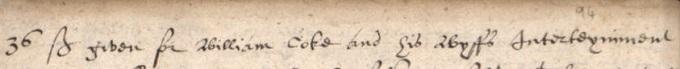 94
36 ß given for William Coke and his wyffs Interteynment